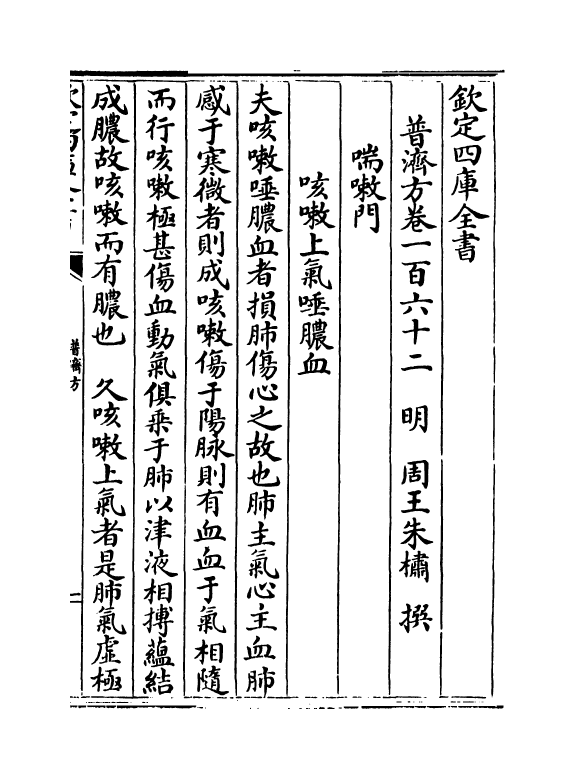 欽定四庫全書
普濟方卷一百六十二 明 周王朱橚 撰
喘嗽門
咳嗽上氣唾膿血
夫咳嗽唾膿血者損肺傷心之故也肺主氣心主血肺
感于寒微者則成咳嗽傷于陽脉則有血血于氣相隨
而行咳嗽極甚傷血動氣俱乘于肺以津液相搏蘊結
成膿故咳嗽而有膿也 久咳嗽上氣者是肺氣虛極
普濟方